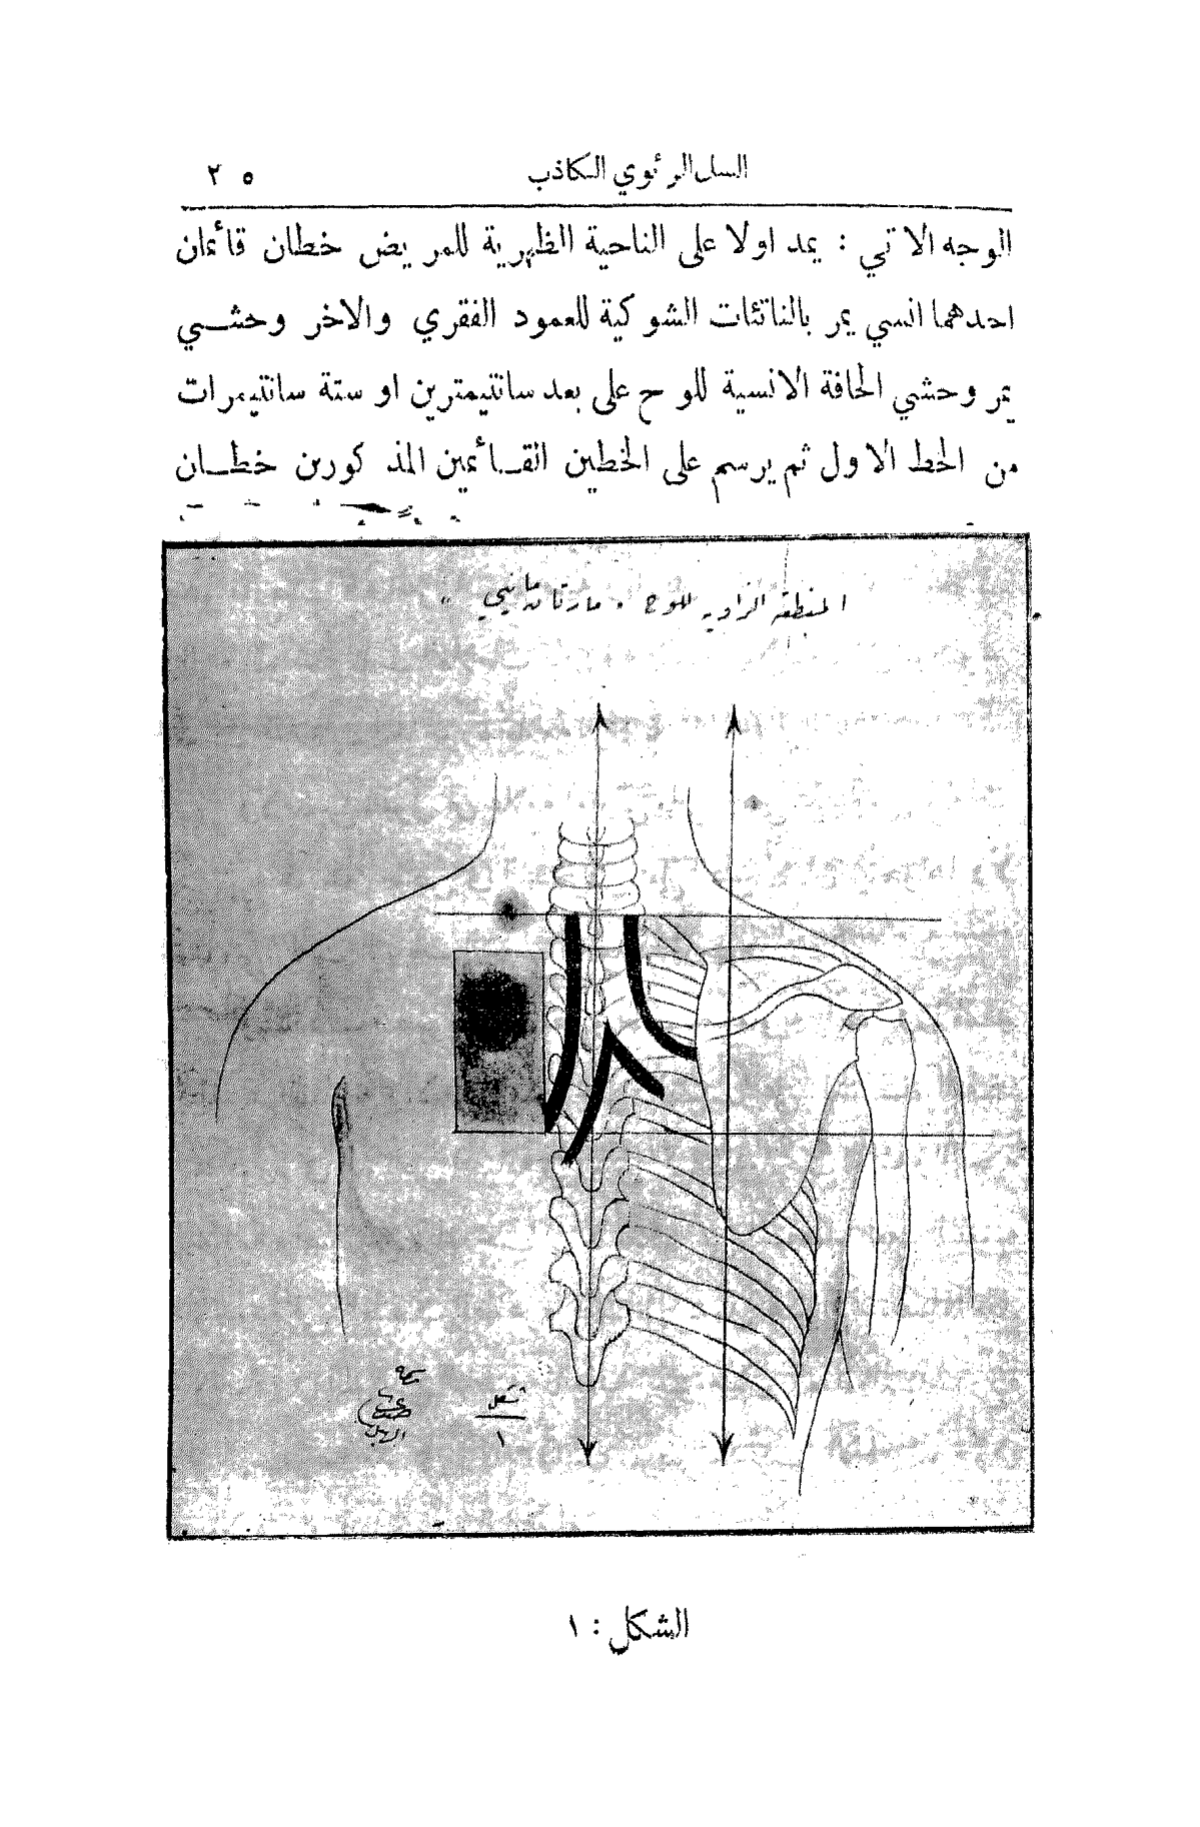 السل الرئوي الكاذب ٢٥
الوجه الاتي : يمد اولا على الناحية الظهرية للمريض خطان قائمان
احدهما انسي يمر بالناتئات الشوكية للعمود الفقري والاخر وحشي
يمر وحشي الحافة الانسية للوح على بعد سانتيمترين او ستة سانتيمرات
من الخط الاول ثم يرسم على الخطين القائمين المذكورين خطان
المنطقة الزاوية للوح
شكل
١
الشكل : ١